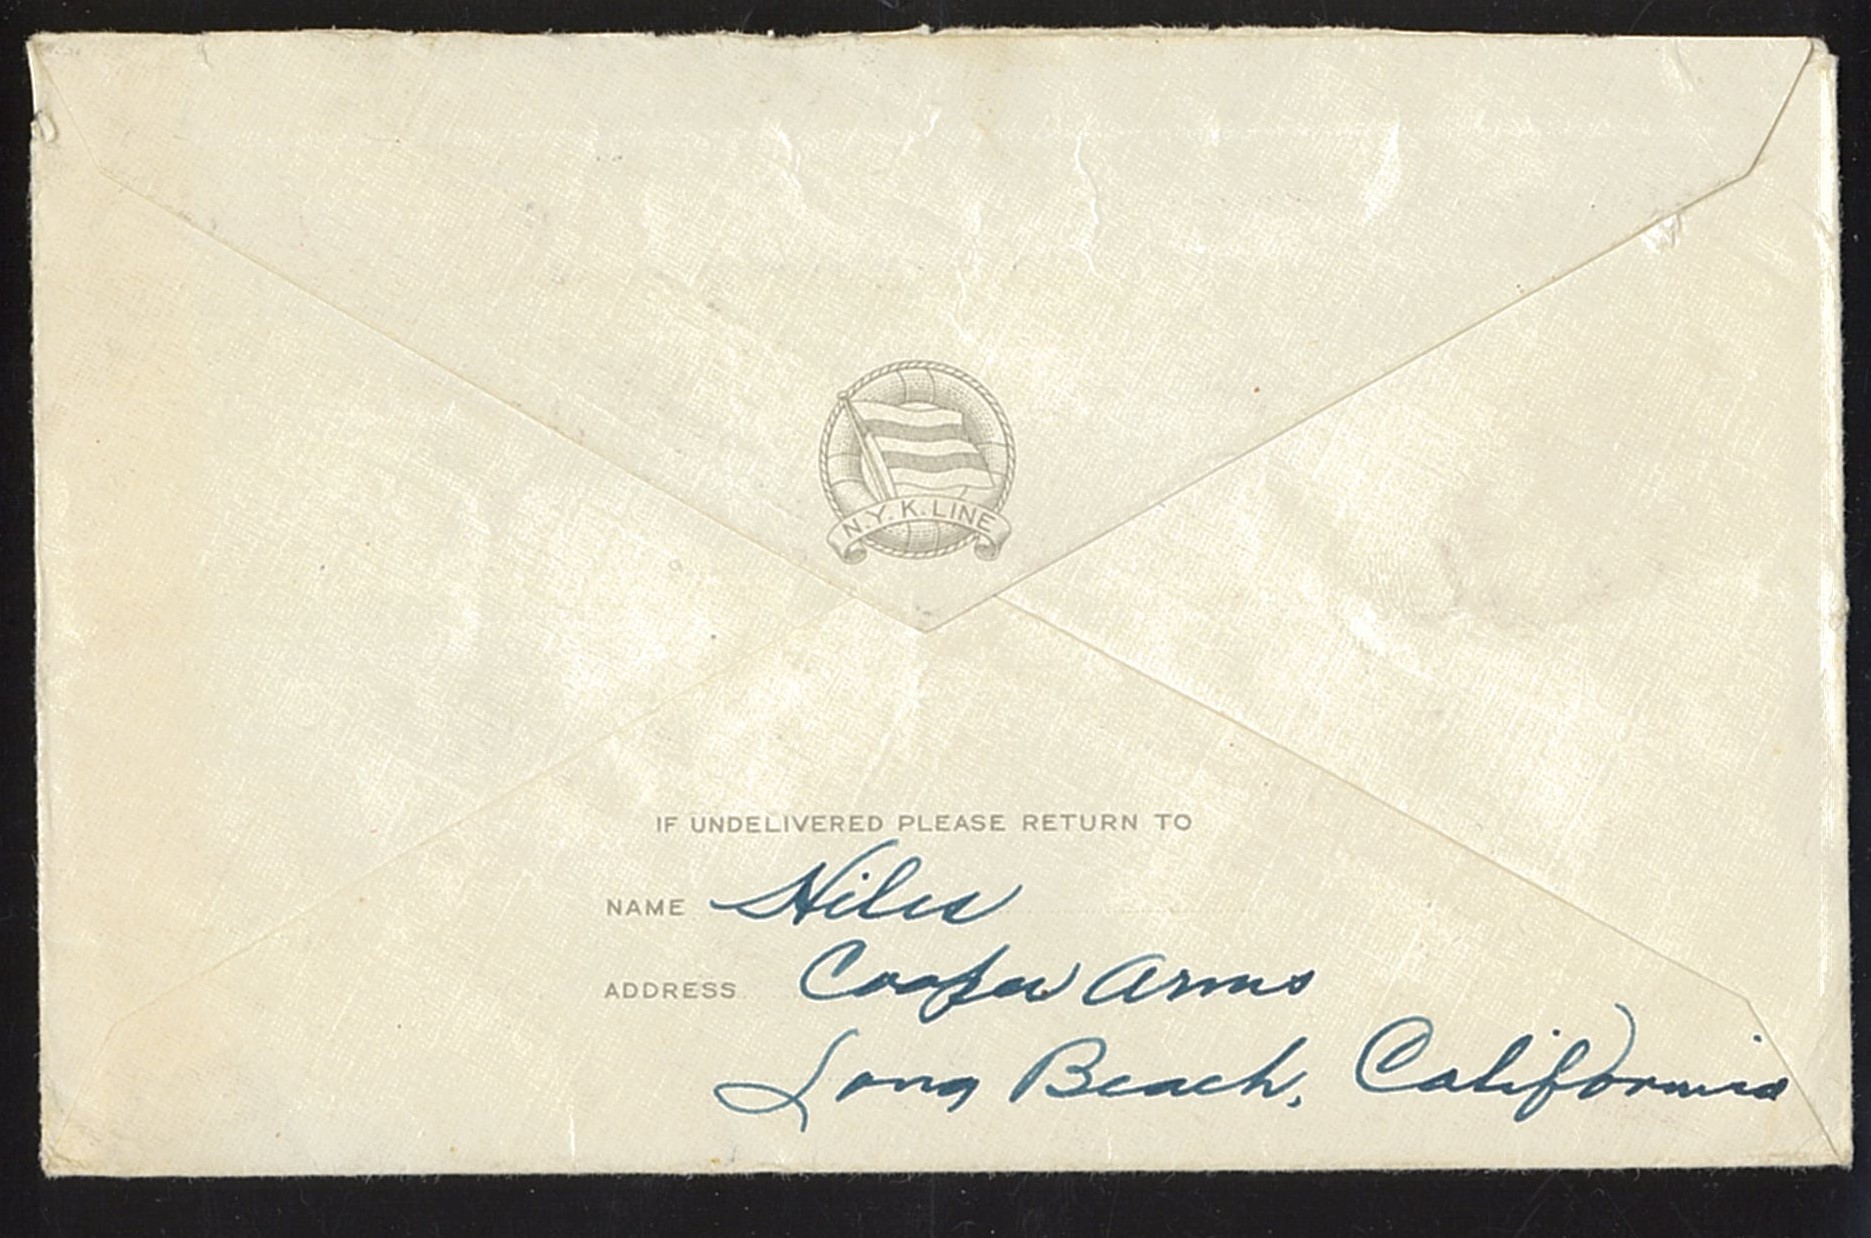 N.Y.K. LINE
IF UNDELIVERED PLEASE RETURN TO
NAME Hiles
ADDRESS Cooper Arms
Long Beach, California